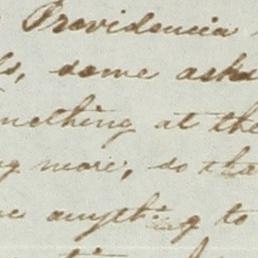 Providencia
, some asked
mething at the
g more, so tha
e anything to